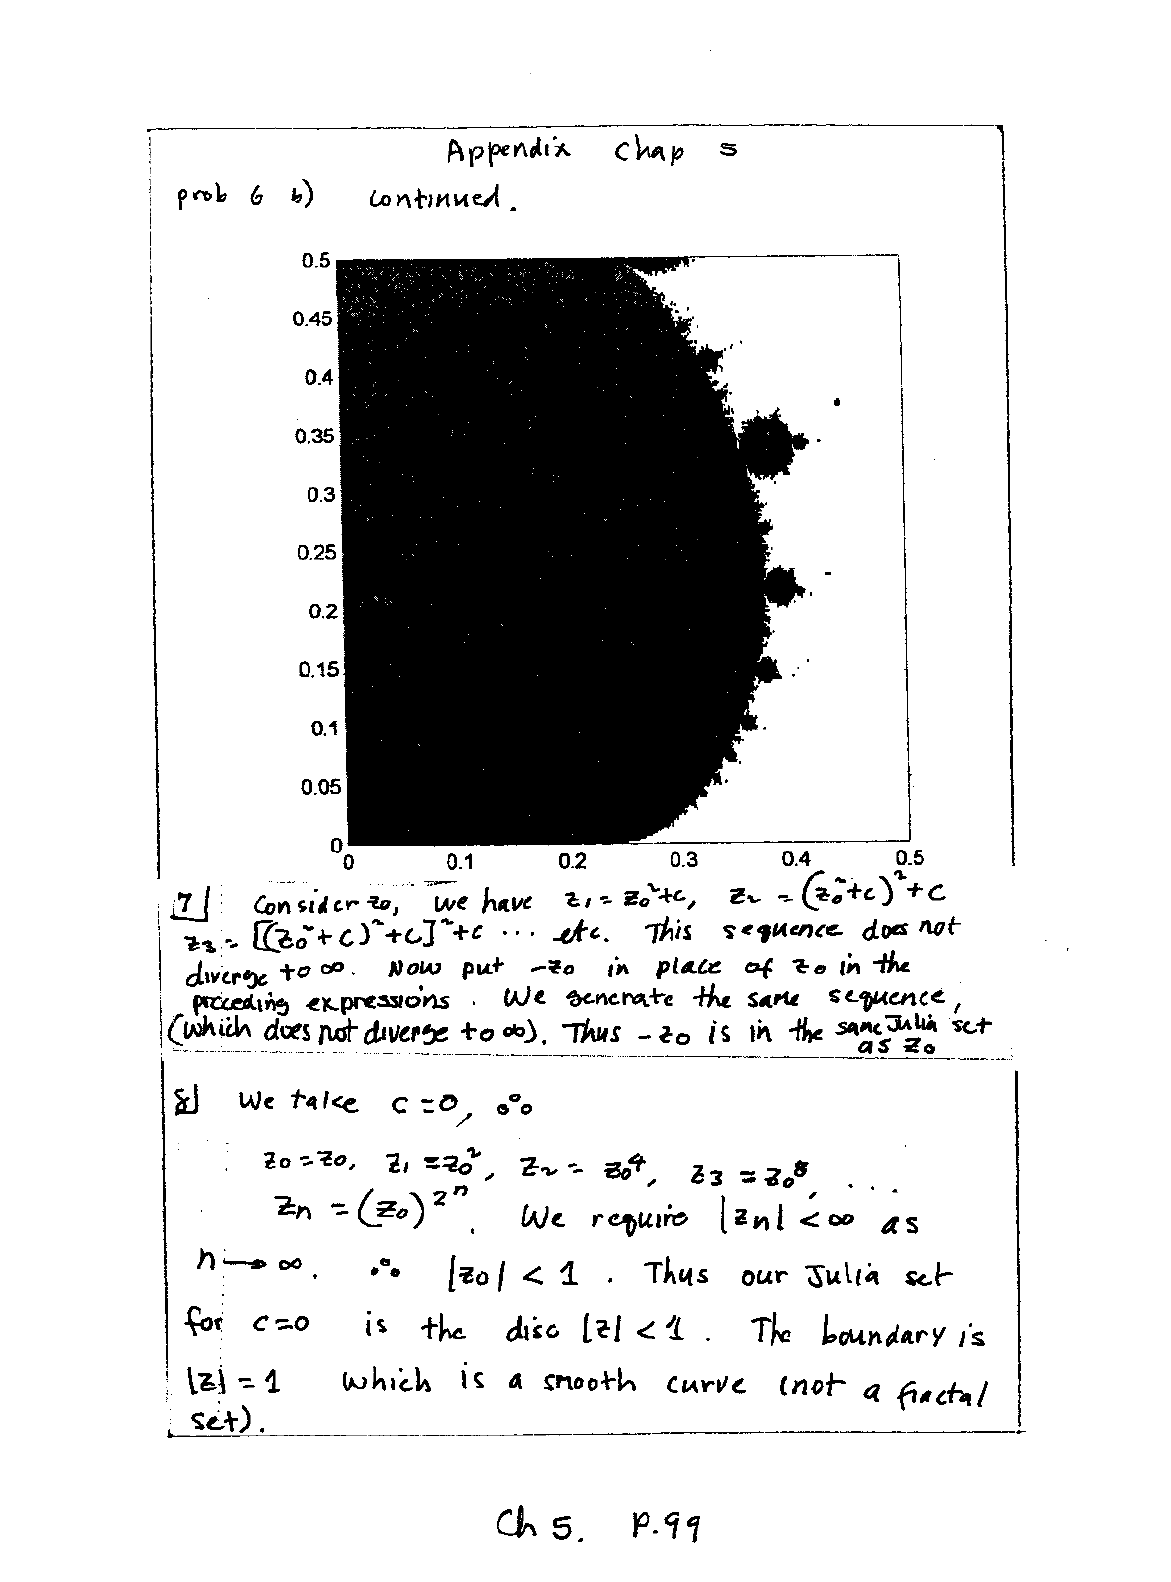 Appendix Chap 5
prob 6 b) continued.
0.5
0.45
0.4
0.35
0.3
0.25
0.2
0.15
0.1
0.05
0
0 0.1 0.2 0.3 0.4 0.5
7 Consider z₀, we have z₁ = z₀²+c, z₂ = (z₀²+c)²+c
z₃ = [(z₀²+c)²+c]²+c ... etc. This sequence does not
diverge to ∞. Now put -z₀ in place of z₀ in the
preceding expressions. We generate the same sequence,
(which does not diverge to ∞). Thus -z₀ is in the same Julia set
as z₀
8 We take c = 0, ∴
z₀ = z₀, z₁ = z₀², z₂ = z₀⁴, z₃ = z₀⁸, ...
zn = (z₀)^2^n. We require |zn| < ∞ as
n → ∞. ∴ |z₀| < 1. Thus our Julia set
for c=0 is the disc |z| < 1. The boundary is
|z| = 1 which is a smooth curve (not a fractal
set).
Ch 5. P.99